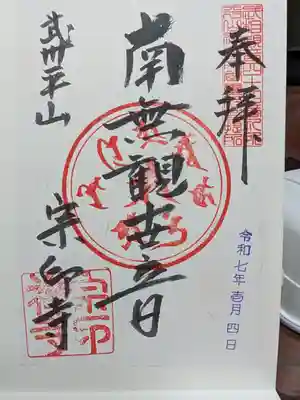 奉拝
令和七年壱月四日
南無観世音
武州平山
宗印寺
宗印禅寺